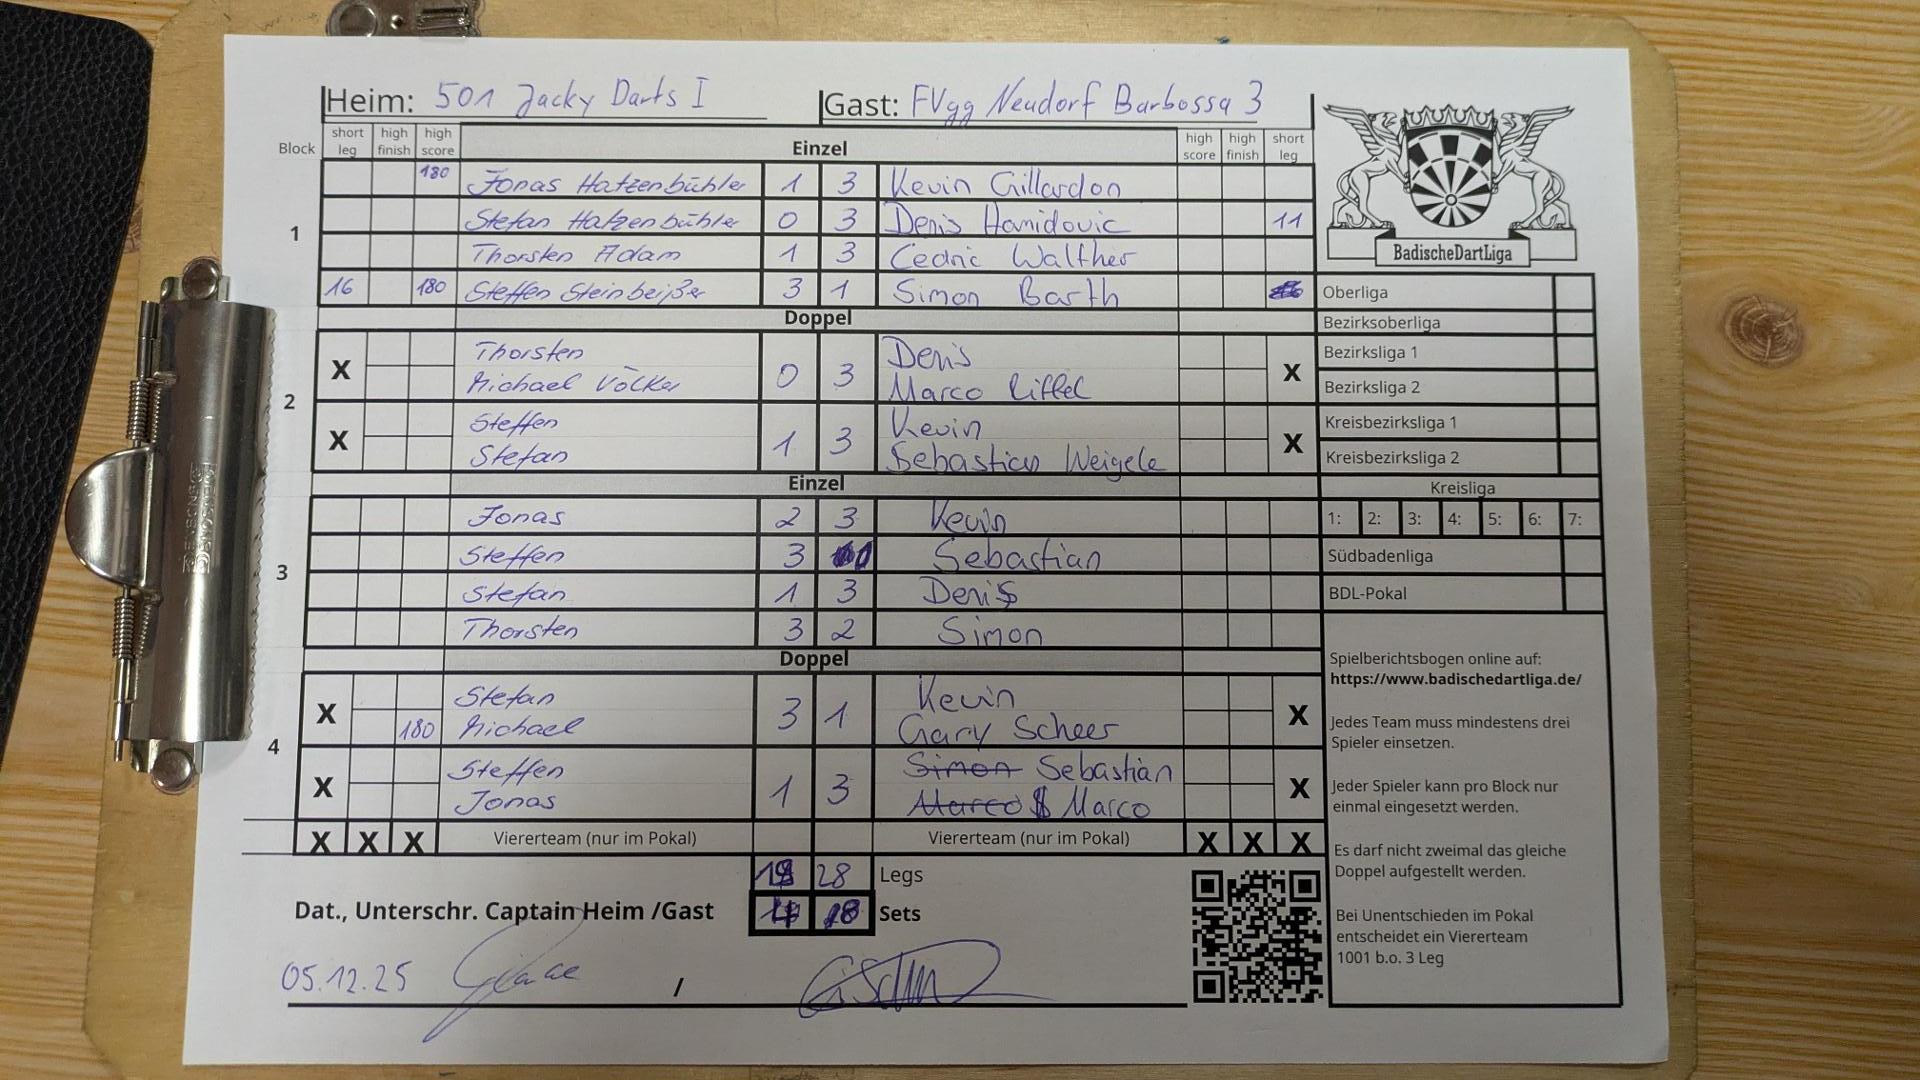 Heim: 501 Jacky Darts I Gast: FVgg Neudorf Barbossa 3
Block short leg high finish high score Einzel high score high finish short leg
180 Jonas Hatzenbühler 1 3 Kevin Gillardon
1
Stefan Hatzenbühler 0 3 Denis Hamidovic 11
Thorsten Adam 1 3 Cedric Walther
16 180 Steffen Steinbeißer 3 1 Simon Barth
Doppel
2
X Thorsten 0 3 Denis X
Michael Völker Marco Riffel
X Steffen 1 3 Kevin X
Stefan Sebastian Weigele
Einzel
3
Jonas 2 3 Kevin
Steffen 3 Sebastian
Stefan 1 3 Denis
Thorsten 3 2 Simon
Doppel
4
X Stefan 3 1 Kevin X
180 Michael Gary Scheer
X Steffen 1 3 Simon Sebastian X
Jonas Marco Marco
X X X Vierterteam (nur im Pokal) Vierterteam (nur im Pokal) X X X
28 Legs
Dat., Unterschr. Captain Heim /Gast 4 8 Sets
05.12.25 /
BadischeDartLiga
Oberliga
Bezirksoberliga
Bezirksliga 1
Bezirksliga 2
Kreisbezirksliga 1
Kreisbezirksliga 2
Kreisliga
1: 2: 3: 4: 5: 6: 7:
Südbadenliga
BDL-Pokal
Spielberichtsbogen online auf:
https://www.badischedartliga.de/
Jedes Team muss mindestens drei
Spieler einsetzen.
Jeder Spieler kann pro Block nur
einmal eingesetzt werden.
Es darf nicht zweimal das gleiche
Doppel aufgestellt werden.
Bei Unentschieden im Pokal
entscheidet ein Viererteam
1001 b.o. 3 Leg